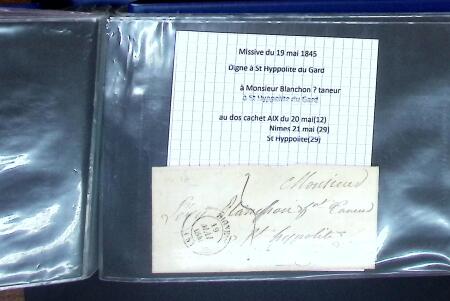 Missive du 19 mai 1845
Digne à St Hyppolite du Gard
à Monsieur Blanchon ? taneur
à St Hyppolite du Gard
au dos cachet AIX du 20 mai(12)
Nimes 21 mai (29)
St Hyppolite(29)
Monsieur
Blanchon
St hyppolite
19
MAI